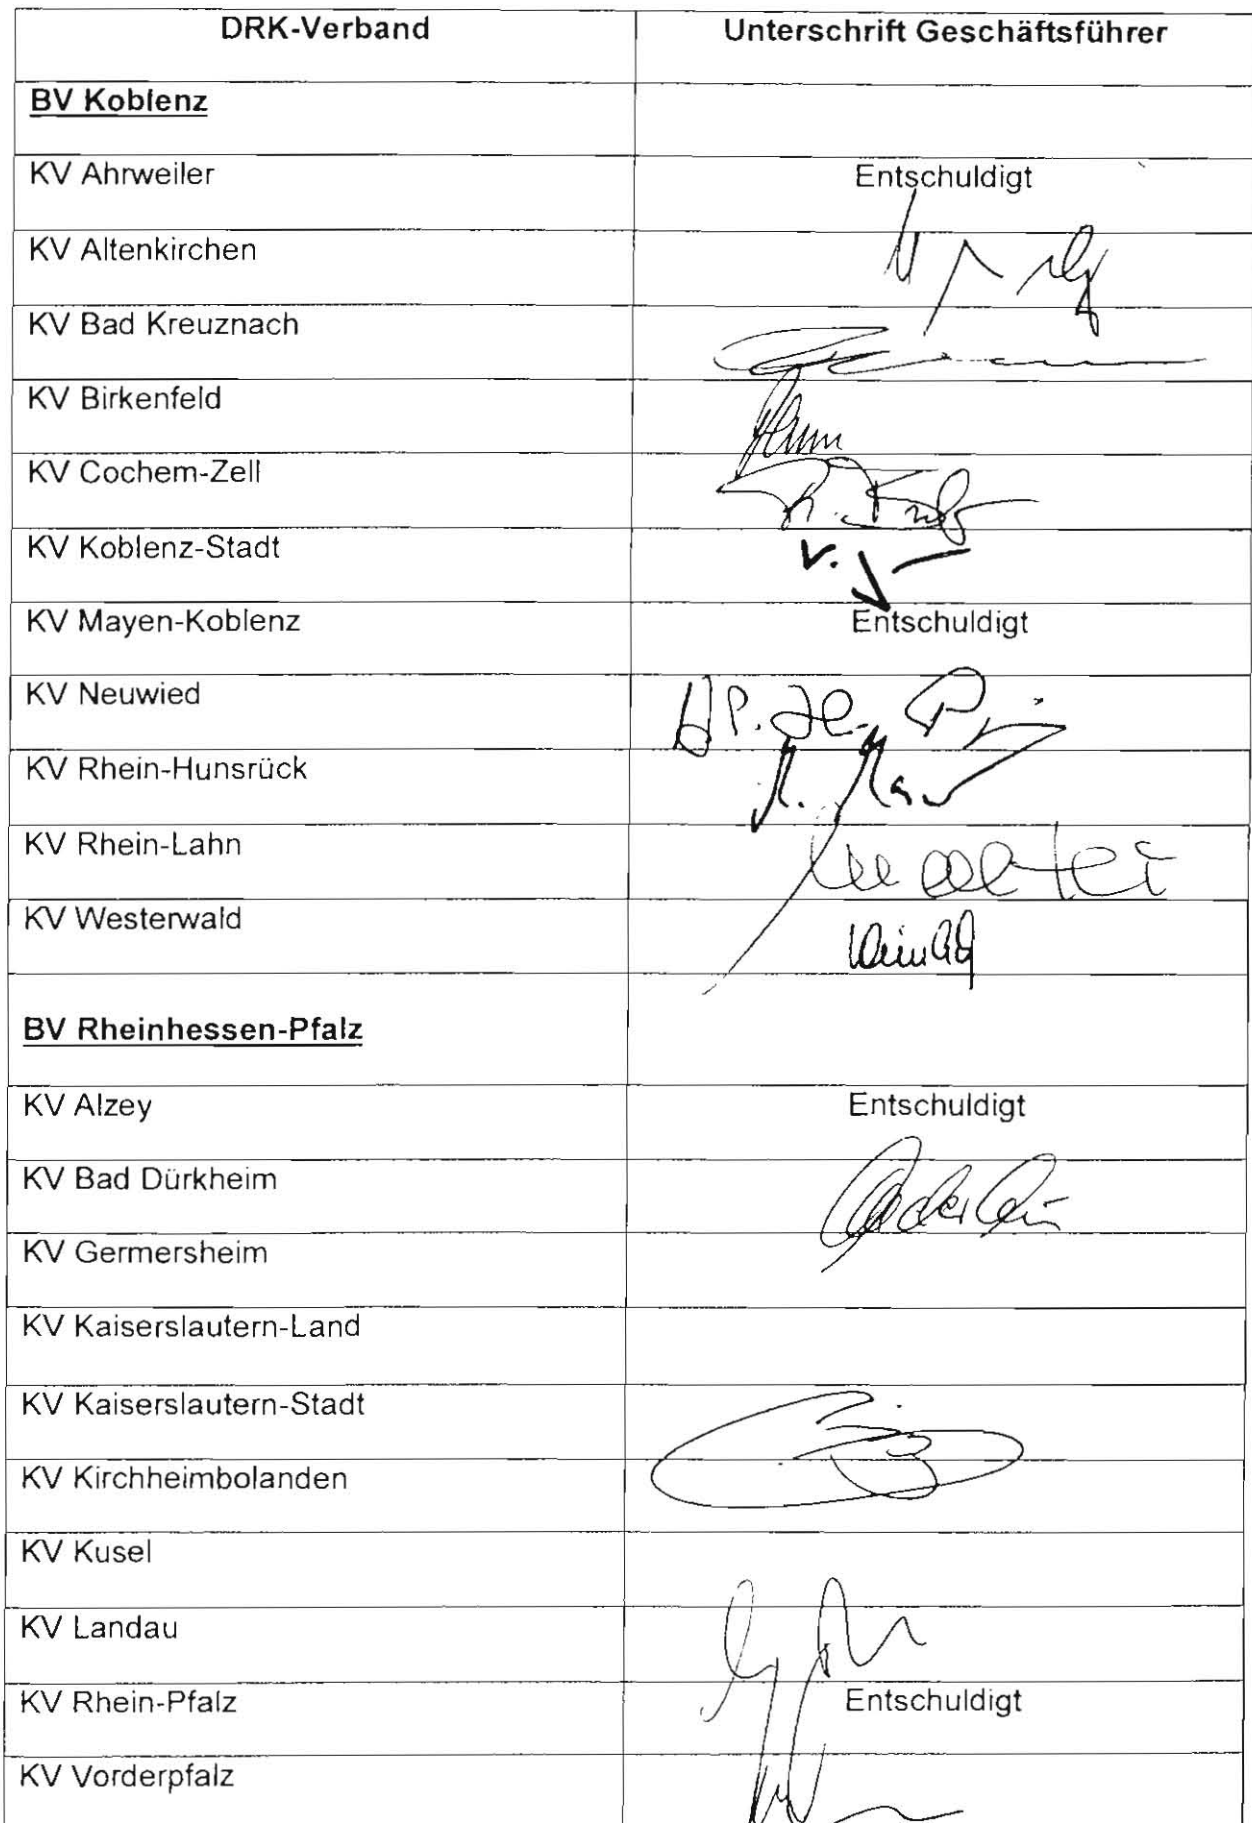 DRK-Verband Unterschrift Geschäftsführer
BV Koblenz
KV Ahrweiler Entschuldigt
KV Altenkirchen
KV Bad Kreuznach
KV Birkenfeld
KV Cochem-Zell
KV Koblenz-Stadt
KV Mayen-Koblenz Entschuldigt
KV Neuwied
KV Rhein-Hunsrück
KV Rhein-Lahn
KV Westerwald
BV Rheinhessen-Pfalz
KV Alzey Entschuldigt
KV Bad Dürkheim
KV Germersheim
KV Kaiserslautern-Land
KV Kaiserslautern-Stadt
KV Kirchheimbolanden
KV Kusel
KV Landau
KV Rhein-Pfalz Entschuldigt
KV Vorderpfalz